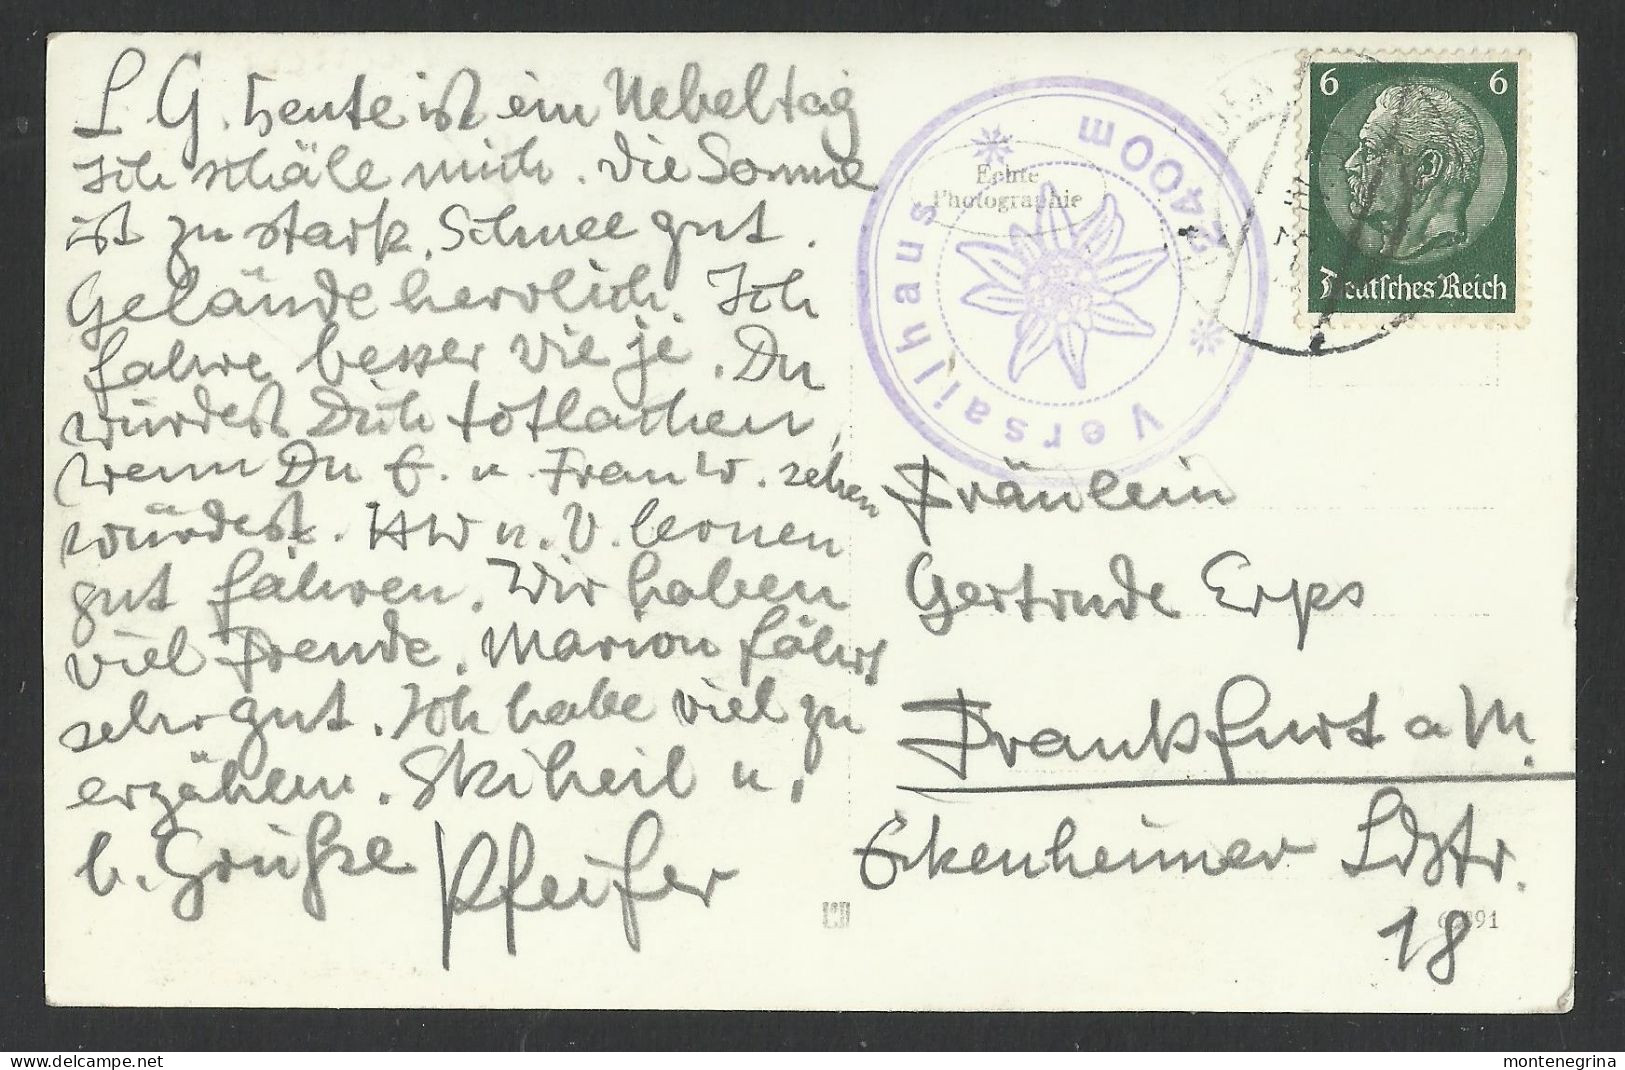 L G. heute ist ein Nebeltag
Ich schäle mich. Die Sonne
ist zu stark. Schnee gut.
Gelände herrlich. Ich
fahre besser wie je. Du
würdest Dich totlachen,
wenn Du E. u. Frau W. sehen
würdest. HW u. V. lernen
gut fahren. Wir haben
viel Freude. Marion fährt
sehr gut. Ich habe viel zu
erzählen. Skiheil u.
b. Grüße Pfeifer
Echte
Photographie
Versailhaus
2400m
6 6
Deutsches Reich
Fräulein
Gertrude Erps
Frankfurt a M.
Eckenheimer Ldstr.
18
montenegrina